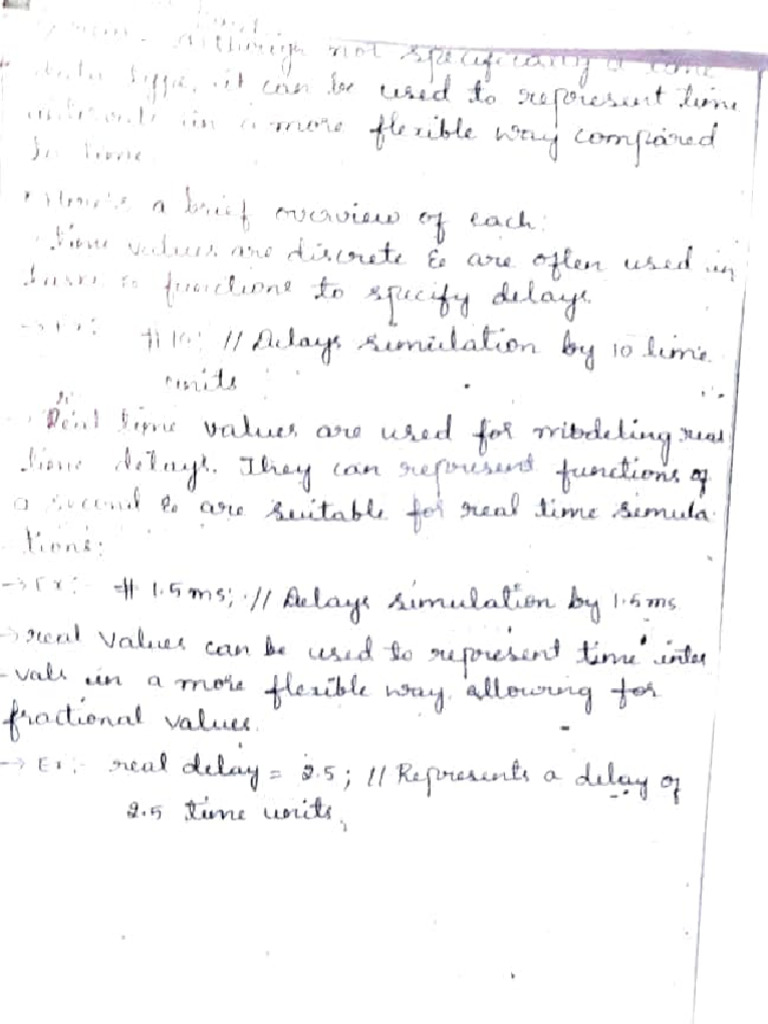 Although not specifically a time
data type, it can be used to represent time
in a more flexible way compared
to time.
Here's a brief overview of each:
time values are discrete & are often used in
functions to specify delays.
→ Ex: #10; // Delays simulation by 10 time
units
Real time values are used for modeling real
time delays. They can represent functions of
a second & are suitable for real time simula
tions:
→ Ex:- # 1.5ms; // Delays simulation by 1.5ms
→ real values can be used to represent time inter
-vals in a more flexible way, allowing for
fractional values.
→ Ex:- real delay = 2.5; // Represents a delay of
2.5 time units,